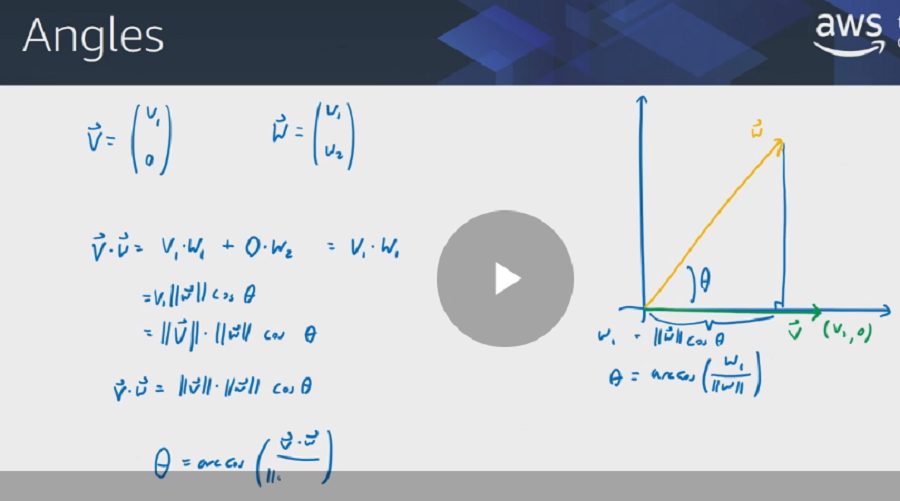 Angles
aws
V⃗ = (V₁ 0)
W⃗ = (W₁ W₂)
W⃗
V⃗·W⃗ = V₁·W₁ + 0·W₂ = V₁·W₁
= V₁||W⃗|| cos θ
= ||V⃗||·||W⃗|| cos θ
V⃗·W⃗ = ||V⃗||·||W⃗|| cos θ
θ = arccos (V⃗·W⃗ / ||
θ
W₁ = ||W⃗|| cos θ
V⃗ (V₁, 0)
θ = arccos (W₁ / ||W||)